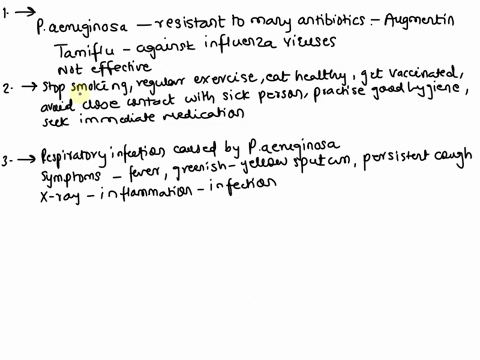 1. →
P. aeruginosa — resistant to many antibiotics - Augmentin
Tamiflu - against influenza viruses
Not effective
2. → Stop smoking, regular exercise, eat healthy, get vaccinated,
avoid close contact with sick person, practise good hygiene,
seek immediate medication
3. → Respiratory infection caused by P. aeruginosa
Symptoms - fever, greenish-yellow sputum, persistent cough
X-ray - inflammation - infection